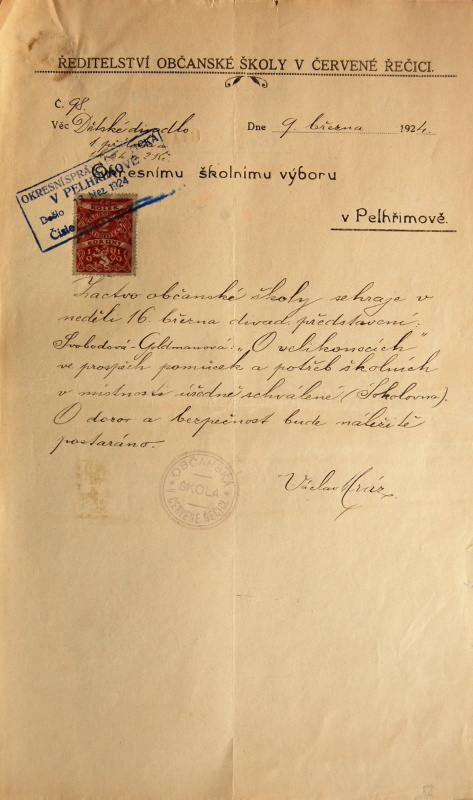 ŘEDITELSTVÍ OBČANSKÉ ŠKOLY V ČERVENÉ ŘEČICI.
Č. 98.
Věc Dětské divadlo
Dne 9. března 1924.
1 příloha
OKRESNÍ SPRÁVA POLITICKÁ
V PELHŘIMOVĚ
Došlo břez. 1924
Číslo
Okresnímu školnímu výboru
v Pelhřimově.
KOLEK
2
KORUNY
1919
Žactvo občanské školy sehraje v
neděli 16. března divad. představení:
Svobodová-Goldmanová: „O velikonocích"
ve prospěch pomůcek a potřeb školních
v místnosti úředně schválené (Sokolovna).
O dozor a bezpečnost bude náležitě
postaráno.
OBČANSKÁ
ŠKOLA
V ČERVENÉ ŘEČICI
Václav Mráz